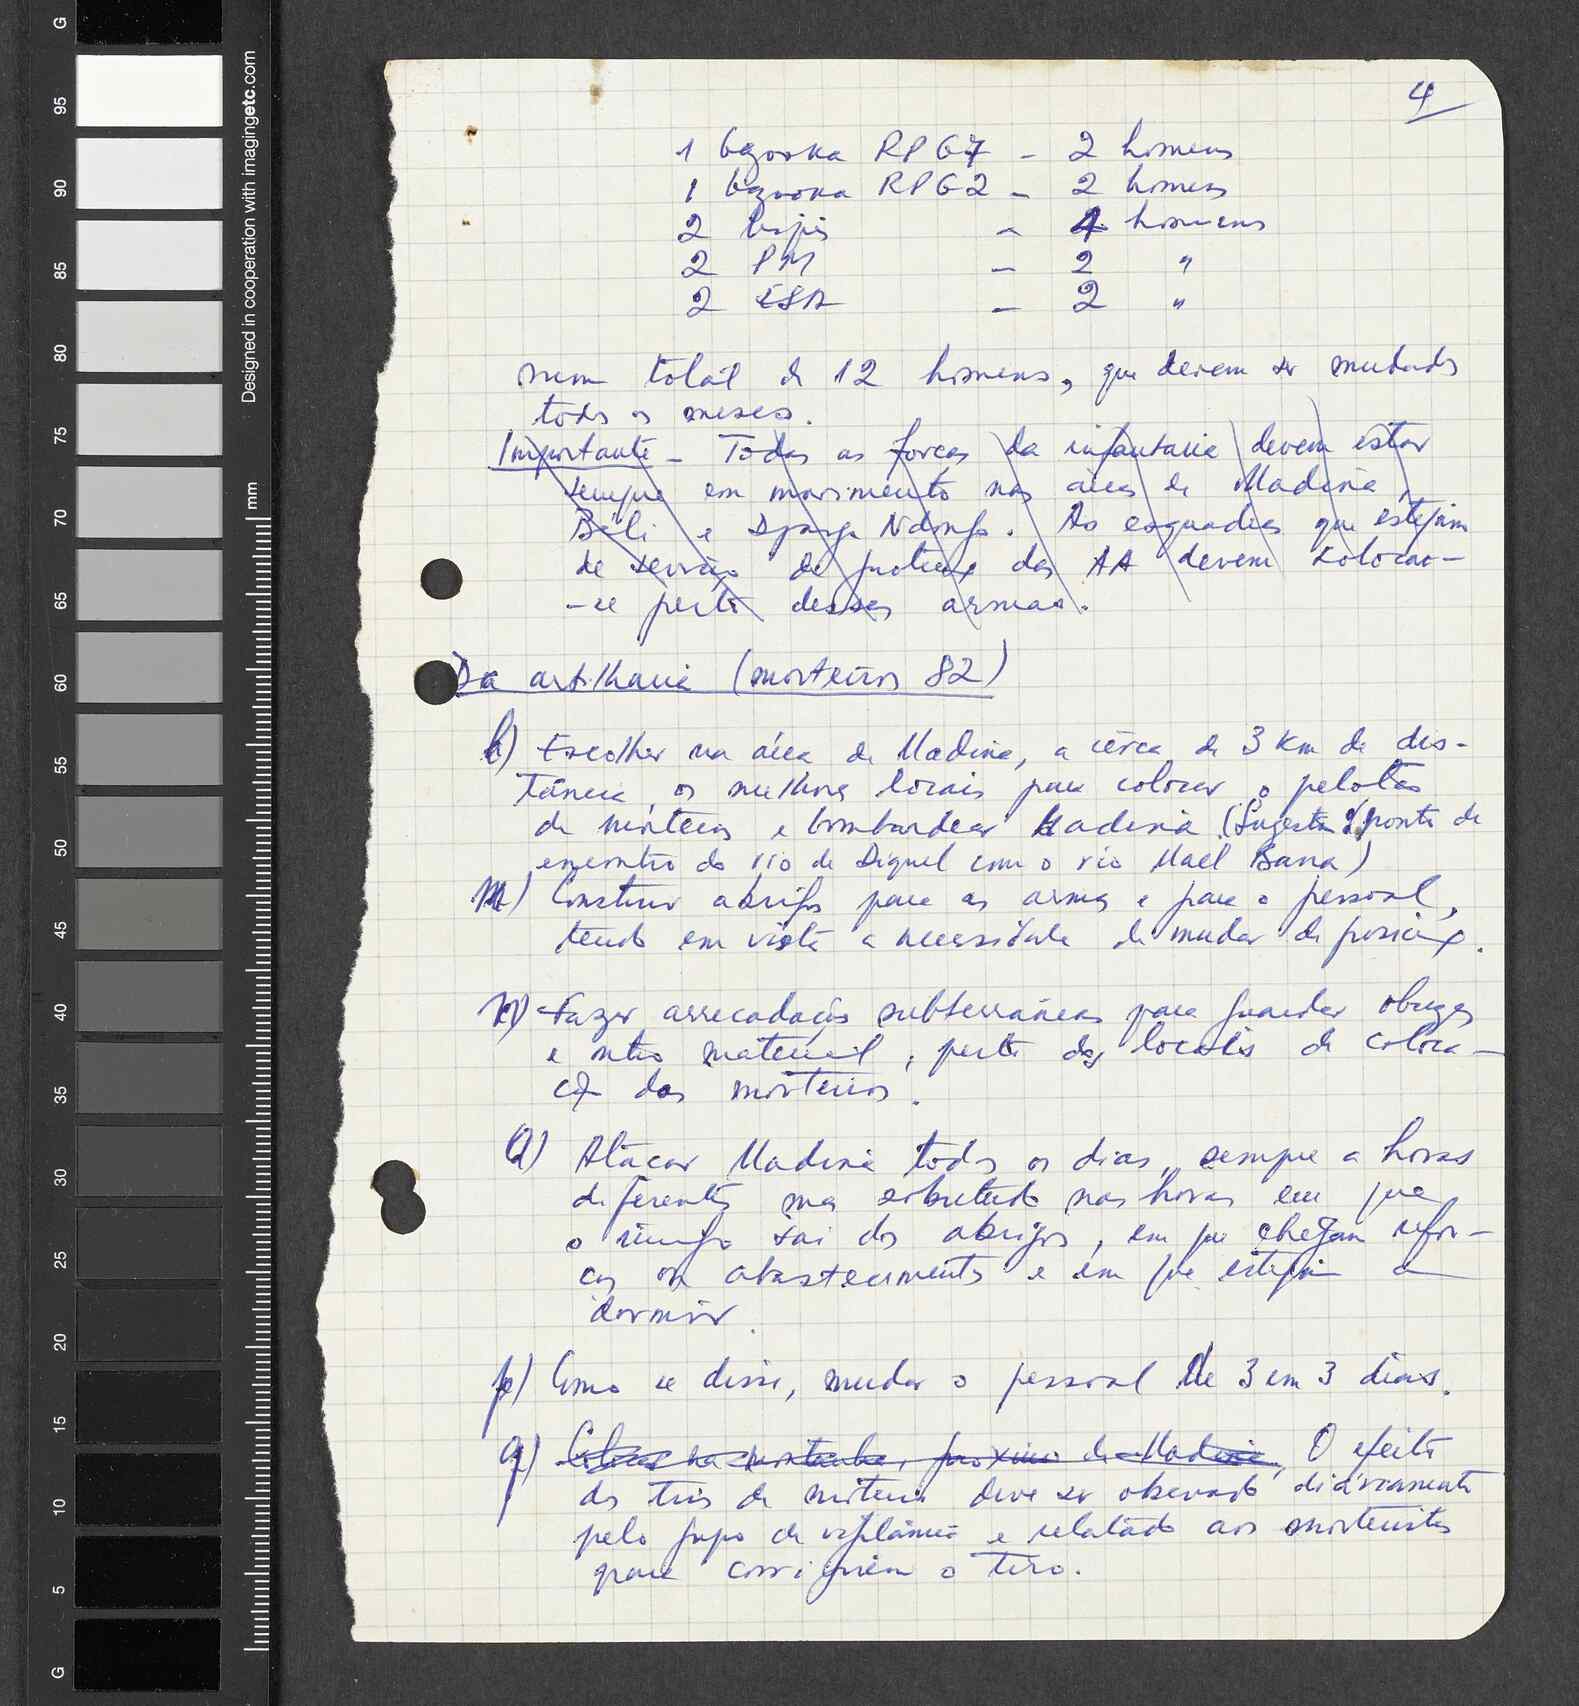 4
1 bazooka RPG7 – 2 homens
1 bazooka RPG2 – 2 homens
2 – 4 homens
2 PM – 2 "
2 – 2 "
num total de 12 homens, que devem ser mudados
todos os meses.
Importante – Todas as forças da infantaria devem estar
sempre em movimento nas áreas de Madina,
Béli e Djarga Ndongo. As esquadras que estejam
de serviço de protecção das AA devem colocar-
-se perto dessas armas.
Da artilharia (morteiros 82)
l) Escolher na área de Madina, a cêrca de 3 Km de dis-
tância, os melhores locais para colocar o pelotão
de morteiros e bombardear Madina (Sugestão: ponto de
encontro do rio de Diquel com o rio Mael Bana)
m) Construir abrigos para as armas e para o pessoal,
tendo em vista a necessidade de mudar de posição.
n) Fazer arrecadações subterrâneas para guardar obuzes
e outro material, perto dos locais de coloca-
ção dos morteiros.
o) Atacar Madina todos os dias, sempre a horas
diferentes mas sobretudo nas horas em que
o inimigo sai dos abrigos, em que chegam refor-
ços ou abastecimentos e em que estejam a
dormir.
p) Como se disse, mudar o pessoal de 3 em 3 dias.
q) Colocar na montanha, próximo de Madina, O efeito
dos tiros de morteiro deve ser observado diáriamente
pelo grupo de vigilância e relatado aos morteiristas
para corrigirem o tiro.
G
95
90
85
80
75
70
65
60
55
50
45
40
35
30
25
20
15
10
5
G
Designed in cooperation with imagingetc.com
mm